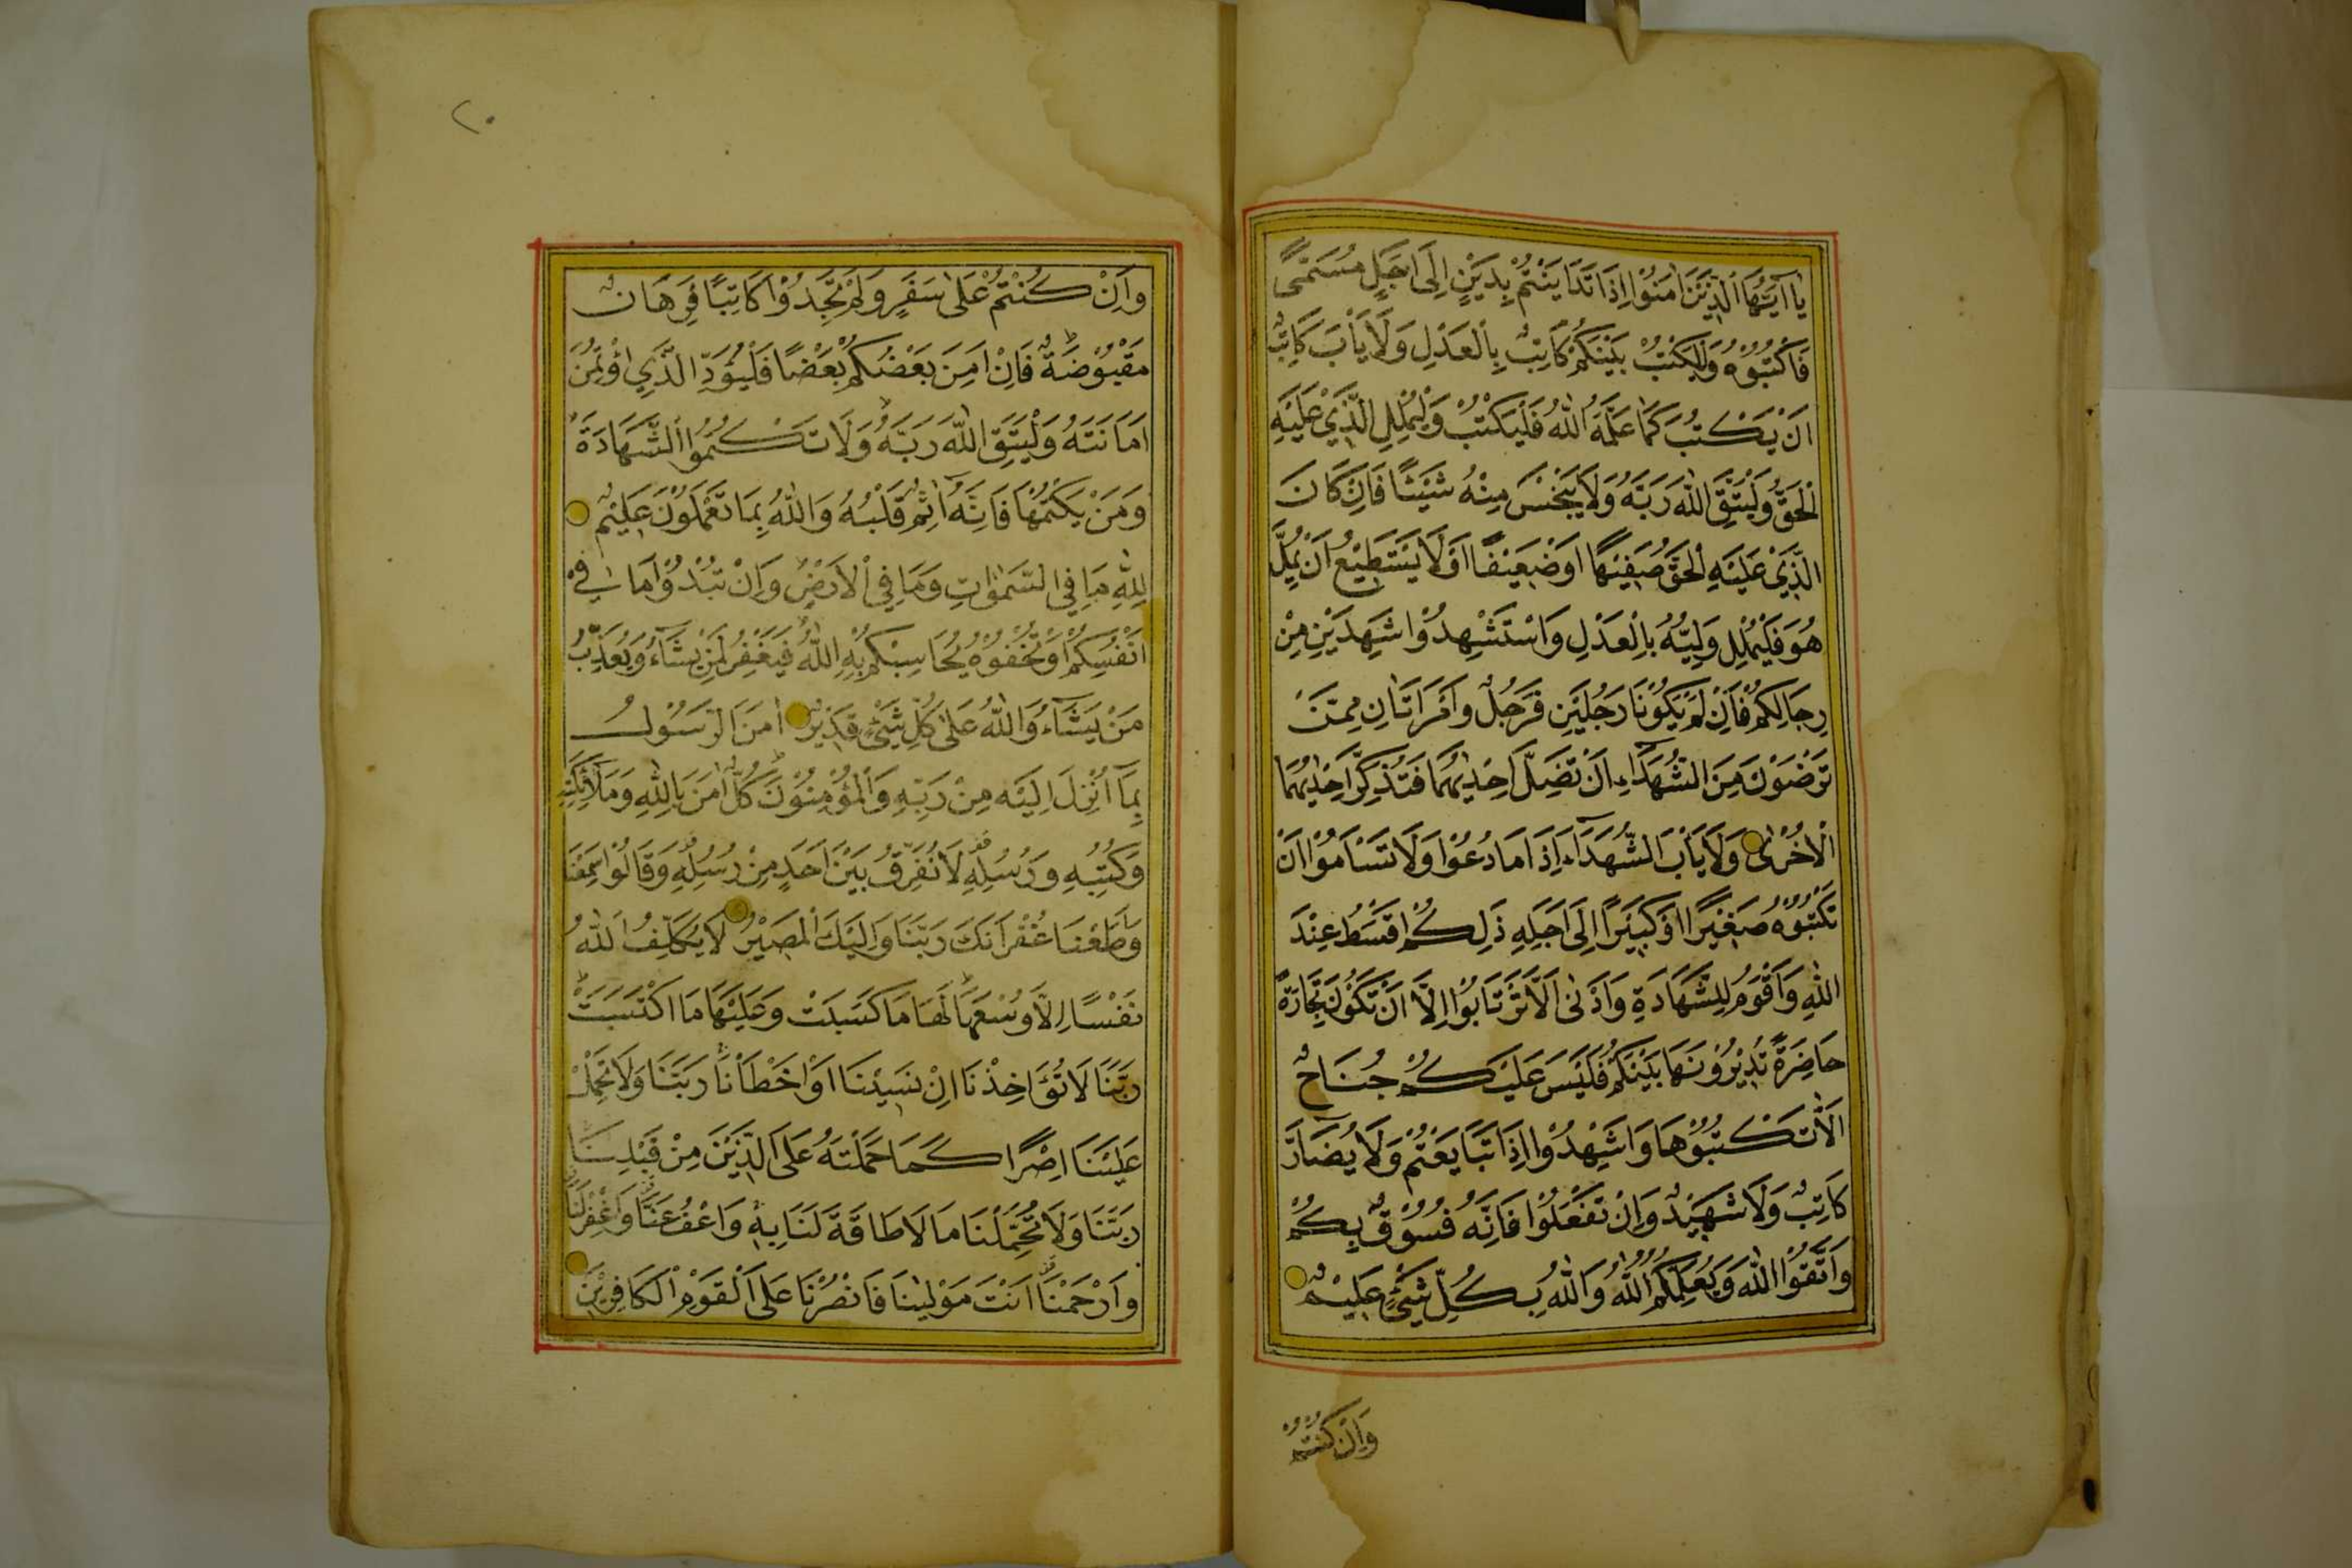 يَاۤ اَيُّهَا الَّذِينَ اٰمَنُوْا اِذَا تَدَايَنْتُمْ بِدَيْنٍ اِلٰۤى اَجَلٍ مُسَمًّى
فَاكْتُبُوْهُ وَلْيَكْتُبْ بَيْنَكُمْ كَاتِبٌ بِالْعَدْلِ وَلَا يَأْبَ كَاتِبٌ
اَنْ يَكْتُبَ كَمَا عَلَّمَهُ اللّٰهُ فَلْيَكْتُبْ وَلْيُمْلِلِ الَّذِيْ عَلَيْهِ
الْحَقُّ وَلْيَتَّقِ اللّٰهَ رَبَّهُ وَلَا يَبْخَسْ مِنْهُ شَيْئًا فَاِنْ كَانَ
الَّذِيْ عَلَيْهِ الْحَقُّ سَفِيْهًا اَوْ ضَعِيْفًا اَوْ لَا يَسْتَطِيْعُ اَنْ يُمِلَّ
هُوَ فَلْيُمْلِلْ وَلِيُّهُ بِالْعَدْلِ وَاسْتَشْهِدُوْا شَهِيدَيْنِ مِنْ
رِجَالِكُمْ فَاِنْ لَمْ يَكُوْنَا رَجُلَيْنِ فَرَجُلٌ وَامْرَاَتَانِ مِمَّنْ
تَرْضَوْنَ مِنَ الشُّهَدَاۤءِ اَنْ تَضِلَّ اِحْدٰيهُمَا فَتُذَكِّرَ اِحْدٰيهُمَا
الْاُخْرٰى وَلَا يَأْبَ الشُّهَدَاۤءُ اِذَا مَا دُعُوْا وَلَا تَسْاَمُوْا اَنْ
تَكْتُبُوْهُ صَغِيْرًا اَوْ كَبِيْرًا اِلٰى اَجَلِهِ ذٰلِكُمْ اَقْسَطُ عِنْدَ
اللّٰهِ وَاَقْوَمُ لِلشَّهَادَةِ وَاَدْنٰى اَلَّا تَرْتَابُوْا اِلَّا اَنْ تَكُوْنَ تِجَارَةً
حَاضِرَةً تُدِيْرُوْنَهَا بَيْنَكُمْ فَلَيْسَ عَلَيْكُمْ جُنَاحٌ
اَلَّا تَكْتُبُوْهَا وَاَشْهِدُوْا اِذَا تَبَايَعْتُمْ وَلَا يُضَاۤرَّ
كَاتِبٌ وَلَا شَهِيْدٌ وَاِنْ تَفْعَلُوْا فَاِنَّهُ فُسُوْقٌ بِكُمْ
وَاتَّقُوْا اللّٰهَ وَيُعَلِّمُكُمُ اللّٰهُ وَاللّٰهُ بِكُلِّ شَيْءٍ عَلِيْمٌ
وَاِنْ كُنْتُمْ
٢٠
وَاِنْ كُنْتُمْ عَلٰى سَفَرٍ وَلَمْ تَجِدُوْا كَاتِبًا فَرِهَانٌ
مَقْبُوْضَةٌ فَاِنْ اَمِنَ بَعْضُكُمْ بَعْضًا فَلْيُؤَدِّ الَّذِي اؤْتُمِنَ
اَمَانَتَهُ وَلْيَتَّقِ اللّٰهَ رَبَّهُ وَلَا تَكْتُمُوا الشَّهَادَةَ
وَمَنْ يَكْتُمْهَا فَاِنَّهُ اٰثِمٌ قَلْبُهُ وَاللّٰهُ بِمَا تَعْمَلُوْنَ عَلِيْمٌ
لِلّٰهِ مَا فِي السَّمٰوَاتِ وَمَا فِي الْاَرْضِ وَاِنْ تُبْدُوْا مَا فِىۤ
اَنْفُسِكُمْ اَوْ تُخْفُوْهُ يُحَاسِبْكُمْ بِهِ اللّٰهُ فَيَغْفِرُ لِمَنْ يَشَاۤءُ وَيُعَذِّبُ
مَنْ يَشَاۤءُ وَاللّٰهُ عَلٰى كُلِّ شَيْءٍ قَدِيْرٌ اٰمَنَ الرَّسُوْلُ
بِمَاۤ اُنْزِلَ اِلَيْهِ مِنْ رَبِّهِ وَالْمُؤْمِنُوْنَ كُلٌّ اٰمَنَ بِاللّٰهِ وَمَلٰۤئِكَتِهِ
وَكُتُبِهِ وَرُسُلِهِ لَا نُفَرِّقُ بَيْنَ اَحَدٍ مِنْ رُسُلِهِ وَقَالُوْا سَمِعْنَا
وَاَطَعْنَا غُفْرَانَكَ رَبَّنَا وَاِلَيْكَ الْمَصِيْرُ لَا يُكَلِّفُ اللّٰهُ
نَفْسًا اِلَّا وُسْعَهَا لَهَا مَا كَسَبَتْ وَعَلَيْهَا مَا اكْتَسَبَتْ
رَبَّنَا لَا تُؤَاخِذْنَا اِنْ نَسِيْنَا اَوْ اَخْطَأْنَا رَبَّنَا وَلَا تَحْمِلْ
عَلَيْنَا اِصْرًا كَمَا حَمَلْتَهُ عَلَى الَّذِيْنَ مِنْ قَبْلِنَا
رَبَّنَا وَلَا تُحَمِّلْنَا مَا لَا طَاقَةَ لَنَا بِهِ وَاعْفُ عَنَّا وَاغْفِرْ لَنَا
وَارْحَمْنَا اَنْتَ مَوْلٰينَا فَانْصُرْنَا عَلَى الْقَوْمِ الْكَافِرِيْنَ